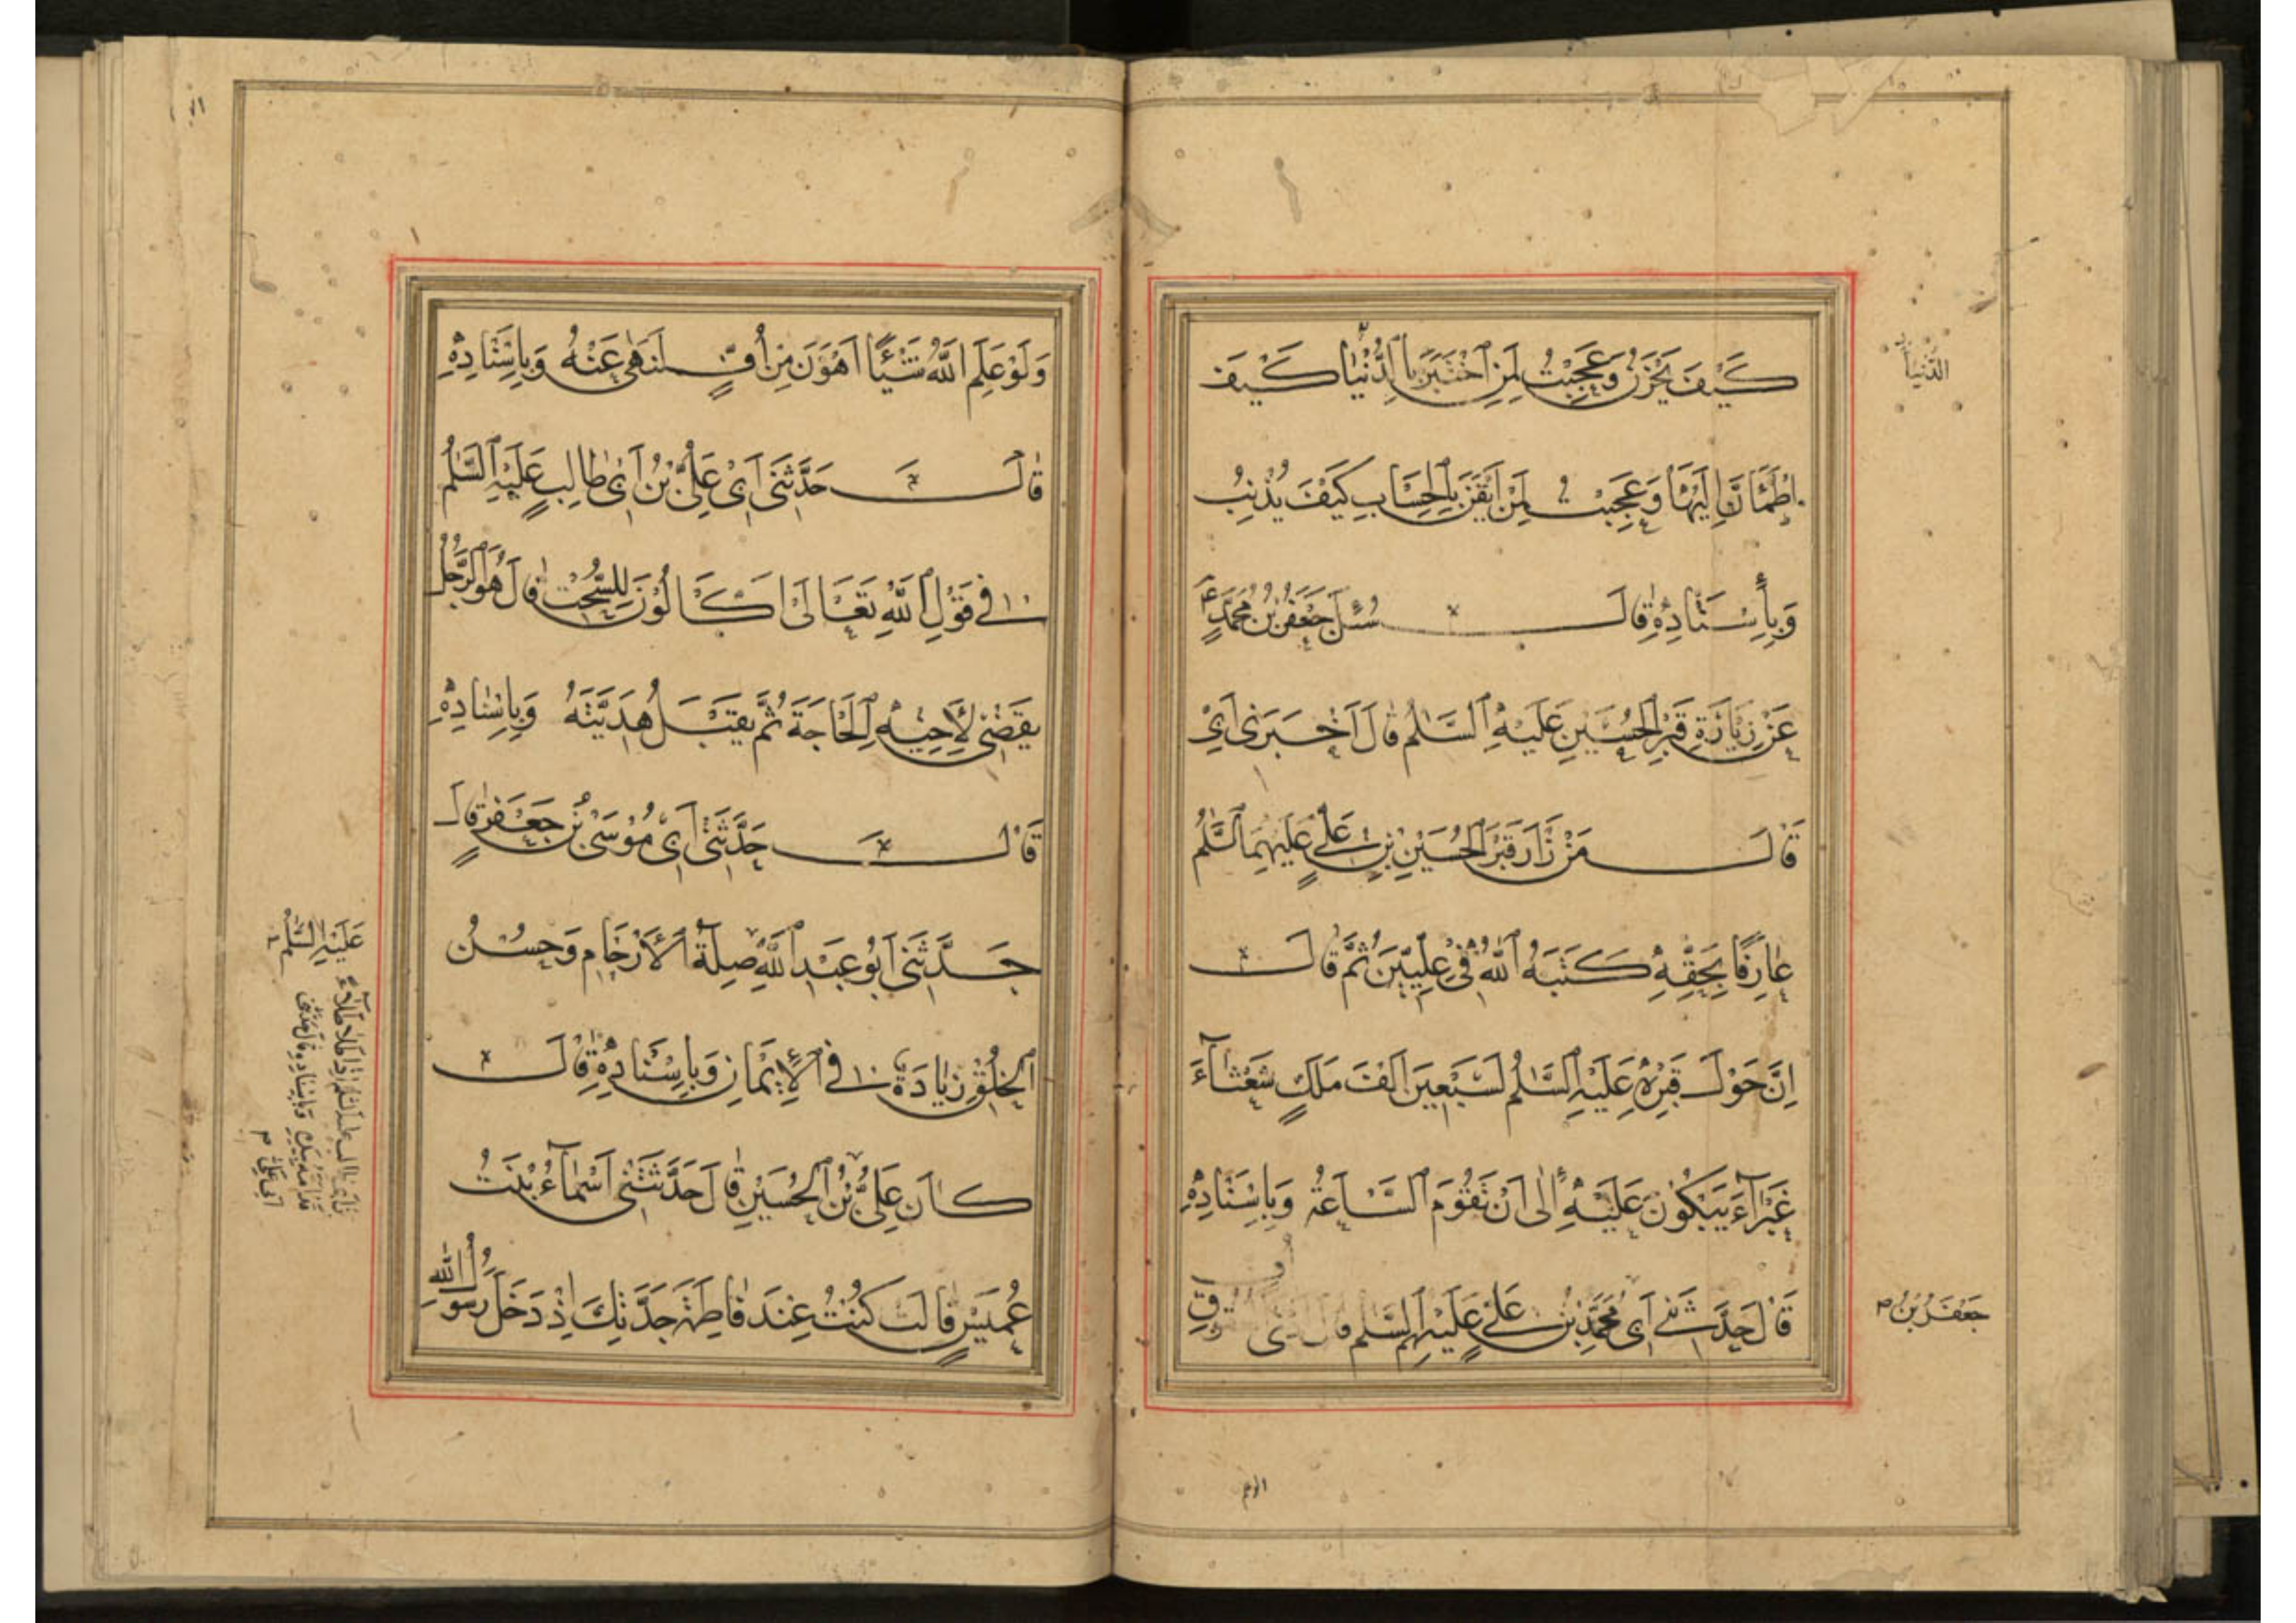 كَيْفَ يَحْزَنُ وَعَجِبْتُ لِمَنِ اخْتَبَرَ الدُّنْيَا كَيْفَ
الدنيا
اِطْمَأَنَّ اِلَيْهَا وَعَجِبْتُ لِمَنْ اَيْقَنَ بِالْحِسَابِ كَيْفَ يُذْنِبُ
وَبِأِسْنَادِهِ قَالَ سُئِلَ جَعْفَرُ بْنُ مُحَمَّدٍ ع
عَنْ زِيَارَةِ قَبْرِ الْحُسَيْنِ عَلَيْهِ السَّلٰمُ قَالَ اَخْبَرَنِى اَبِى
قَالَ مَنْ زَارَ قَبْرَ الْحُسَيْنِ بْنِ عَلِيٍّ عَلَيْهِمَا السَّلٰمُ
عَارِفًا بِحَقِّهِ كَتَبَهُ اللّٰهُ فِى عِلِّيِّينَ ثُمَّ قَالَ
اِنَّ حَوْلَ قَبْرِهِ عَلَيْهِ السَّلٰمُ لَسَبْعِينَ اَلْفَ مَلَكٍ شَعْثَآءَ
غَبْرَآءَ يَبْكُوْنَ عَلَيْهِ اِلٰى اَنْ تَقُوْمَ السَّاعَةُ وَبِاِسْنَادِهِ
قَالَ حَدَّثَنِى اَبِى مُحَمَّدِ بْنِ عَلِيٍّ عَلَيْهِمُ السَّلٰمُ قَالَ
جَعْفَرُ بْنُ
وَلَوْ عَلِمَ اللّٰهُ شَيْئًا اَهْوَنَ مِنْ اُفٍّ لَنَهٰى عَنْهُ وَبِاِسْنَادِهِ
قَالَ حَدَّثَنِى اَبِى عَلِىُّ بْنُ اَبِى طَالِبٍ عَلَيْهِ السَّلٰمُ
فِى قَوْلِ اللّٰهِ تَعَالَى اَكَّالُوْنَ لِلسُّحْتِ قَالَ هُوَ الرَّجُلُ
يَقْضِى لِأَخِيْهِ الْحَاجَةَ ثُمَّ يَقْبَلُ هَدِيَّتَهُ وَبِاِسْنَادِهِ
قَالَ حَدَّثَنِى اَبِى مُوْسَى بْنُ جَعْفَرٍ قَالَ
حَدَّثَنِى اَبُو عَبْدِ اللّٰهِ صِلَةُ الْاَرْحَامِ وَحُسْنُ
عَلَيْهِ السَّلٰمُ
الْخُلُقِ زِيَادَةٌ فِى الْاِيْمَانِ وَبِاِسْنَادِهِ قَالَ
كَانَ عَلِىُّ بْنُ الْحُسَيْنِ قَالَ حَدَّثَتْنِى اَسْمَآءُ بْنَتُ
عُمَيْسٍ قَالَتْ كُنْتُ عِنْدَ فَاطِمَةَ جَدَّتِكَ اِذْ دَخَلَ رَسُوْلُ اللّٰهِ